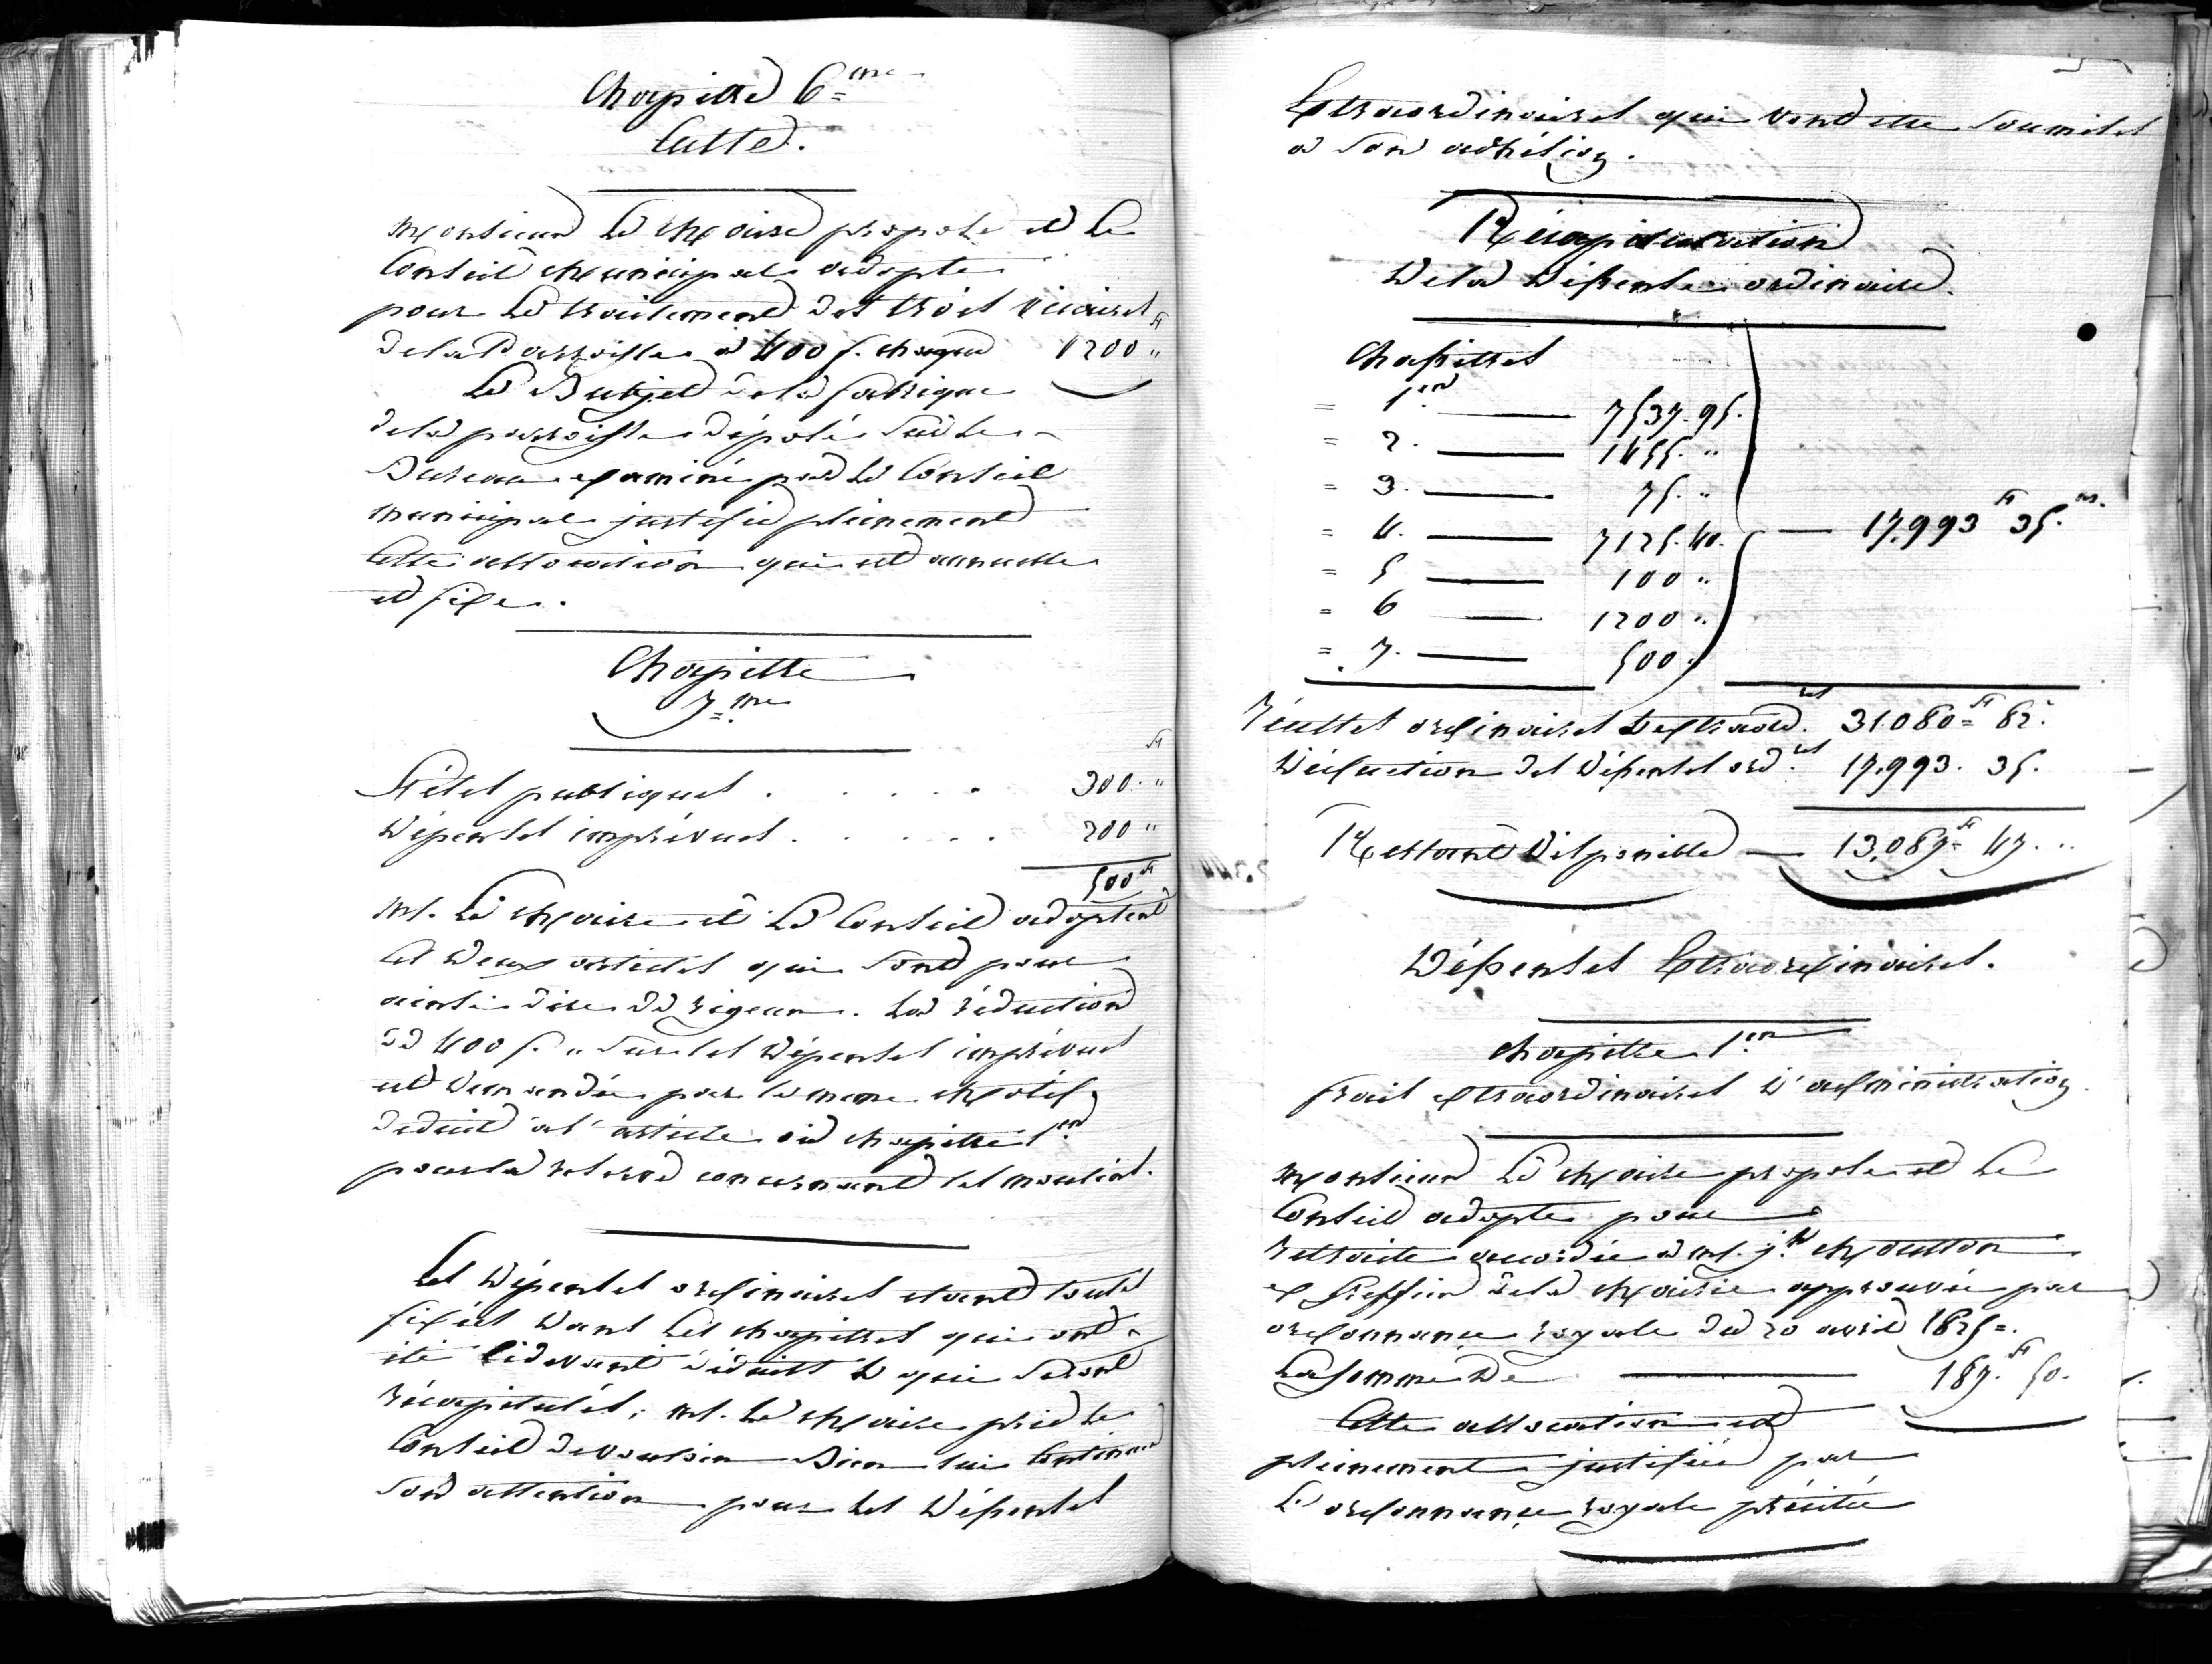 Chapitre 6=me
Culte.
Monsieur le Maire propose et le
Conseil Municipal adopte
pour le traitement des trois vicaires
de la Paroisse à 400 f. chaque 1200 "
Le Budjet de la fabrique
de la paroisse déposé sur le
Bureau examiné par le Conseil
municipal justifie pleinement
cette allocation qui est annuelle
et fixe.
Chapitre
7=me
Fêtes publiques . . . . . 300. "
Dépenses imprévues . . . . . 200 "
500 ff
M. le Maire et le Conseil adoptent
les deux articles qui sont pour
ainsi dire de rigeur. La réduction
de 400 f. " sur les Dépenses imprévues
est demandée par le meme Motif
déduit à l'article du chapitre 1er
pour la réserve concernant les moulins.
Les Dépenses ordinaires etant toutes
fixées dans les chapitres qui ont
été cidevant déduits & qui seront
récapitulés; M. le Maire prie le
Conseil de vouloir Bien lui Continuer
son attention pour les Dépenses
Extraordinaires qui vont etre soumises
à son adhésion.
Récapitulation
De la Dépense ordinaire.
Chapitres
= 1er. 7537. 95.
= 2. 1455. "
= 3. 75. "
= 4. 7125. 40.
= 5 100 "
= 6 1200 "
= 7. 500 "
17,993 ff 35. cs.
Récettes ordinaires & extraord.res 31.080= ff 82.c
Déduction des Dépenses ord.res 17,993. 35.
Restant Disponible 13,087= ff 47. "
Dépenses Extraordinaires.
Chapitre 1er
frais extraordinaires d'administration
Monsieur le Maire propose et le
Conseil adopte pour
retraite accordée à M. j.h Mouston
ex Greffier de la Mairie approuvée par
ordonnance royale du 20 avril 1825=.
La somme De 187. ff 50.
Cette allocation est
pleinement justifiée par
L'ordonnance royale précitée